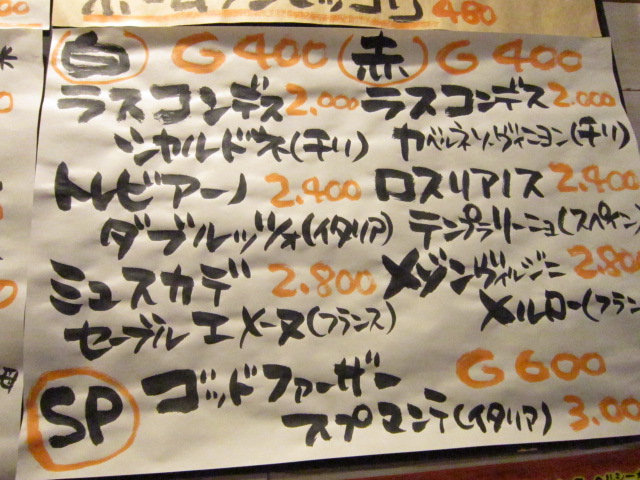 480
白 G400 赤 G400
ラスコンデス 2.000 ラスコンデス 2.000
シャルドネ(チリ) カベルネソーヴィニヨン(チリ)
トレビアーノ 2.400 ロスリアノス 2.400
ダブルッツォ(イタリア) テンプラリーニョ(スペイン)
ミュスカデ 2.800 メゾンヴィルジニ 2.800
セーブルエメーヌ(フランス) メルロー(フラン
SP ゴッドファーザー G600
スプマンテ(イタリア) 3.00